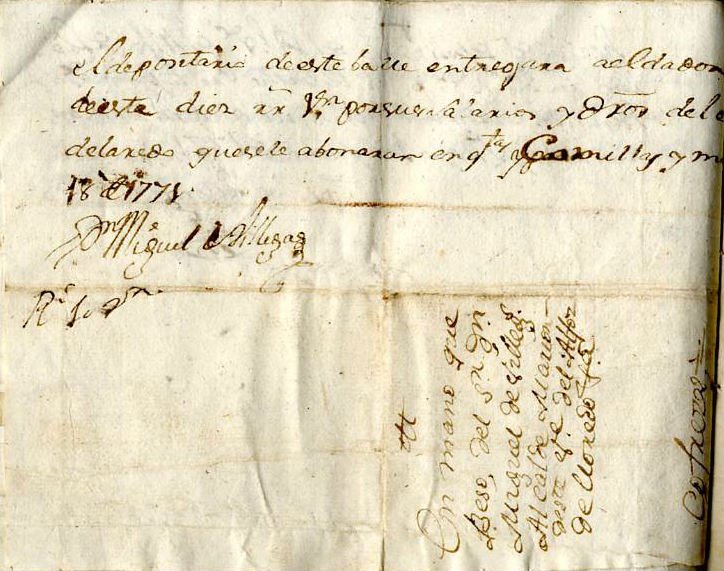 el depositario de este balle entregara a el dador
de este diez rr.^s V.^n por sus salarios y dros del
de laredo que se le abonaran en q.^tas Comillas y m
18 de 1771
D.^n Miguel de Villegas
R.^i 10 r.^s v.^n
En mano que
Beso, del S.^r D.^n
Miguel de Villeg.^s
Alcalde Maior
del Alfoz
de lloredo